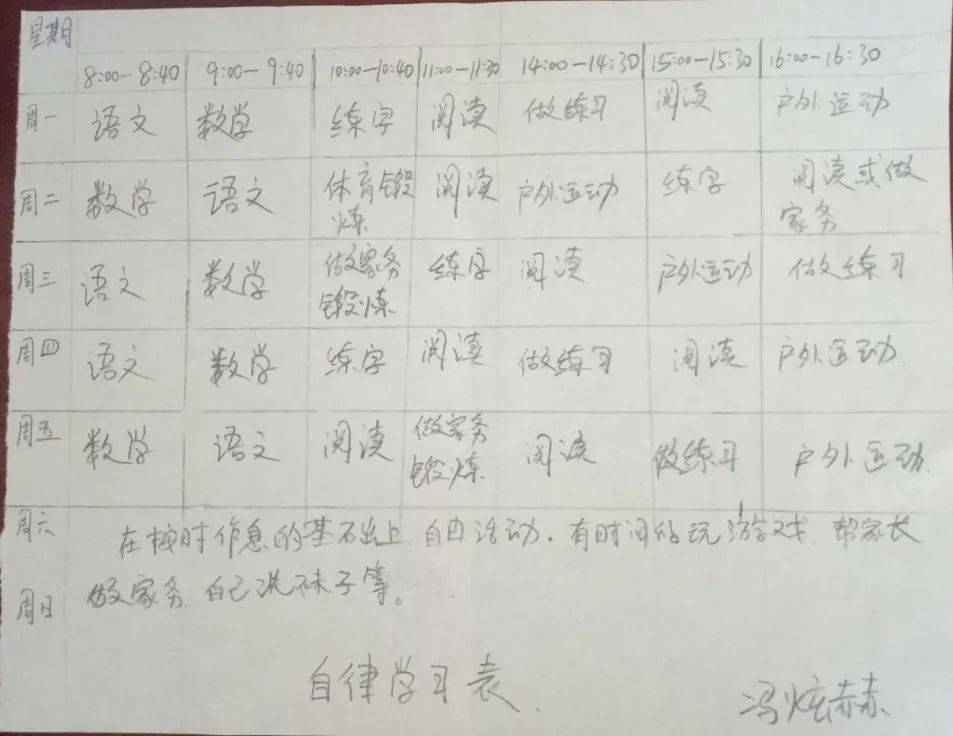 星期
8:00-8:40 9:00-9:40 10:00-10:40 11:00-11:30 14:00-14:30 15:00-15:30 16:00-16:30
周一 语文 数学 练字 阅读 做练习 阅读 户外运动
周二 数学 语文 体育锻炼 阅读 户外运动 练字 阅读或做家务
周三 语文 数学 做家务锻炼 练字 阅读 户外运动 做练习
周四 语文 数学 练字 阅读 做练习 阅读 户外运动.
周五 数学 语文 阅读 做家务锻炼 阅读 做练习 户外运动.
周六 在按时作息的基础上 自由活动. 有时间的玩游戏 帮家长
周日 做家务 自己洗袜子等。
自律学习表.
冯炫赫.